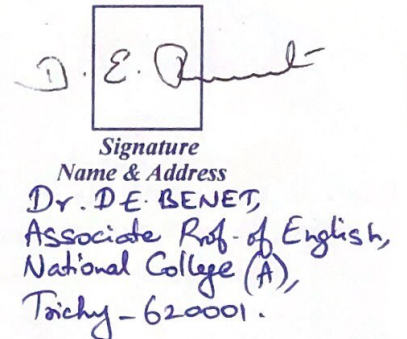 D. E. Benet
Signature
Name & Address
Dr. D.E. BENET,
Associate Prof. of English,
National College (A),
Trichy - 620001.